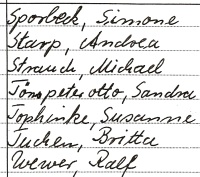 Sporbeck, Simone
Starp, Andrea
Strauch, Michael
Tönspeterotto, Sandra
Tophinke, Susanne
Tucken, Britta
Wewer, Ralf